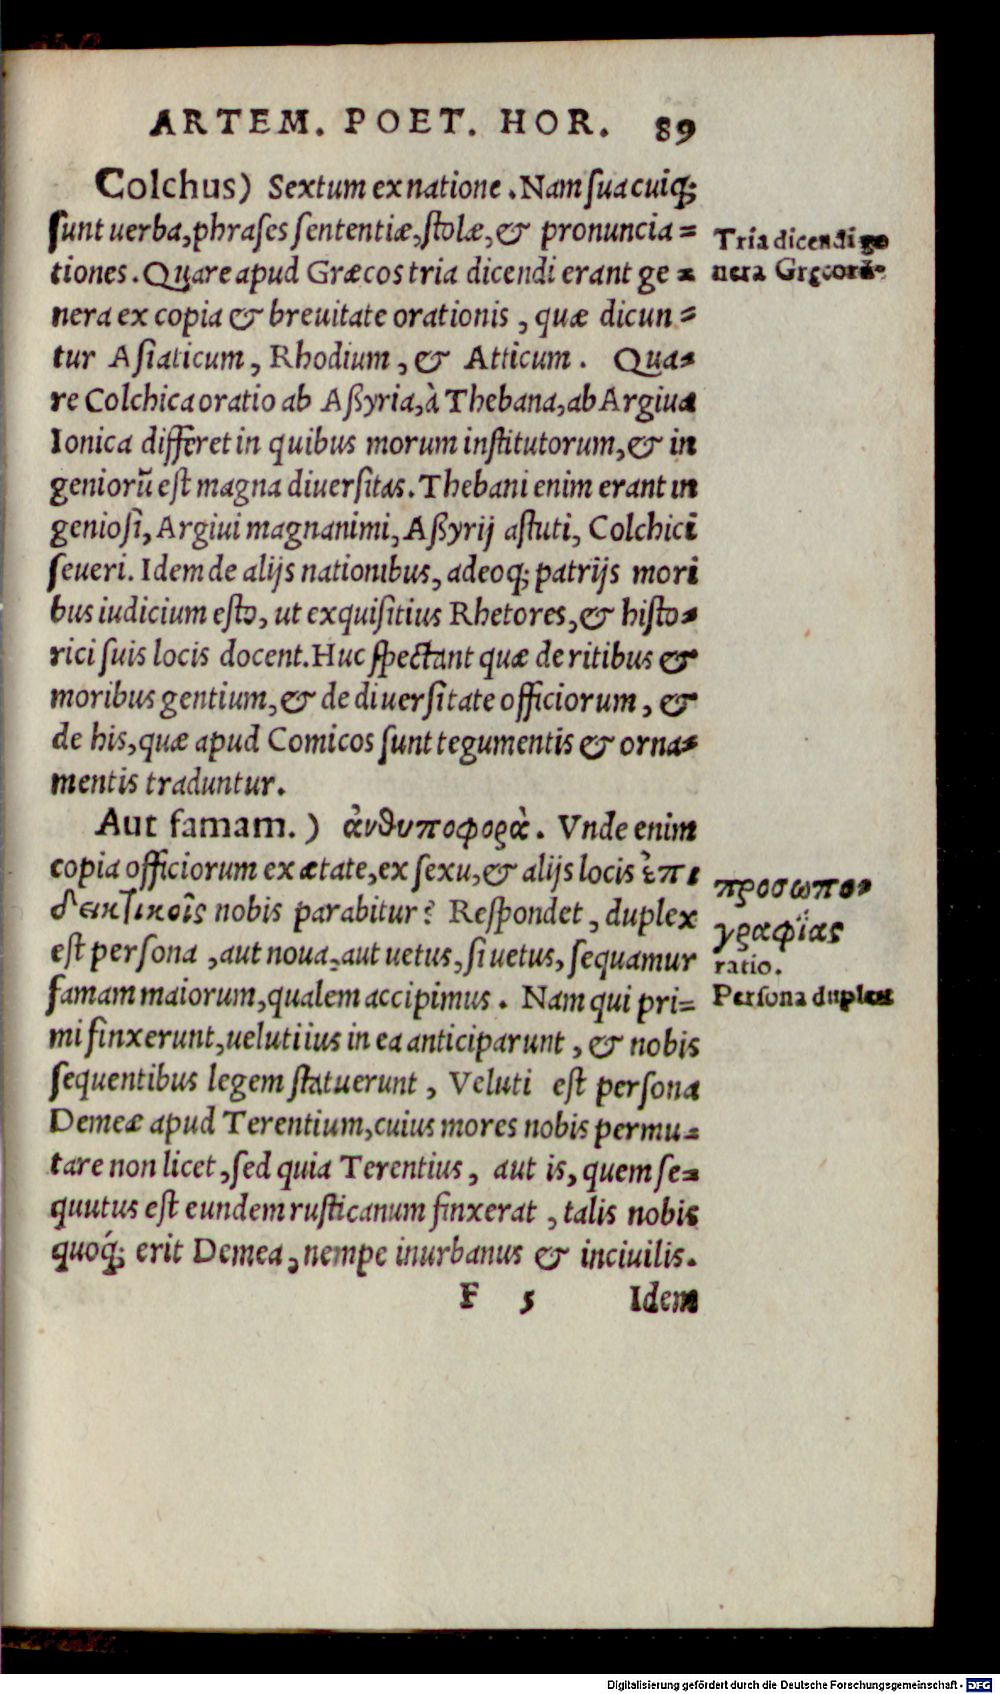 ARTEM. POET. HOR. 89
Colchus) Sextum ex natione. Nam sua cuiq;
sunt uerba, phrases sententiæ, stolæ, & pronuncia=
tiones. Quare apud Græcos tria dicendi erant ge=
nera ex copia & breuitate orationis, quæ dicun=
tur Asiaticum, Rhodium, & Atticum. Qua=
re Colchica oratio ab Aßyria, à Thebana, ab Argiua
Ionica differet in quibus morum institutorum, & in
geniorū est magna diuersitas. Thebani enim erant in
geniosi, Argiui magnanimi, Aßyrij astuti, Colchici
seueri. Idem de alijs nationibus, adeoq; patrijs mori
bus iudicium esto, ut exquisitius Rhetores, & histo=
rici suis locis docent. Huc spectant quæ de ritibus &
moribus gentium, & de diuersitate officiorum, &
de his, quæ apud Comicos sunt tegumentis & orna=
mentis traduntur.
Aut famam.) ἀνθυποφορὰ. Vnde enim
copia officiorum ex ætate, ex sexu, & alijs locis ἐπι
δεικτικοῖς nobis parabitur? Respondet, duplex
est persona, aut noua, aut uetus, si uetus, sequamur
famam maiorum, qualem accipimus. Nam qui pri=
mi finxerunt, ueluti ius in ea anticiparunt, & nobis
sequentibus legem statuerunt, Veluti est persona
Demeæ apud Terentium, cuius mores nobis permu=
tare non licet, sed quia Terentius, aut is, quem se=
quutus est eundem rusticanum finxerat, talis nobis
quoq́; erit Demea, nempe inurbanus & inciuilis.
F 5 Idem
Tria dicendi ge
nera Gręcorū.
προσωπο=
γραφίας
ratio.
Persona duplex
Digitalisierung gefördert durch die Deutsche Forschungsgemeinschaft - DFG